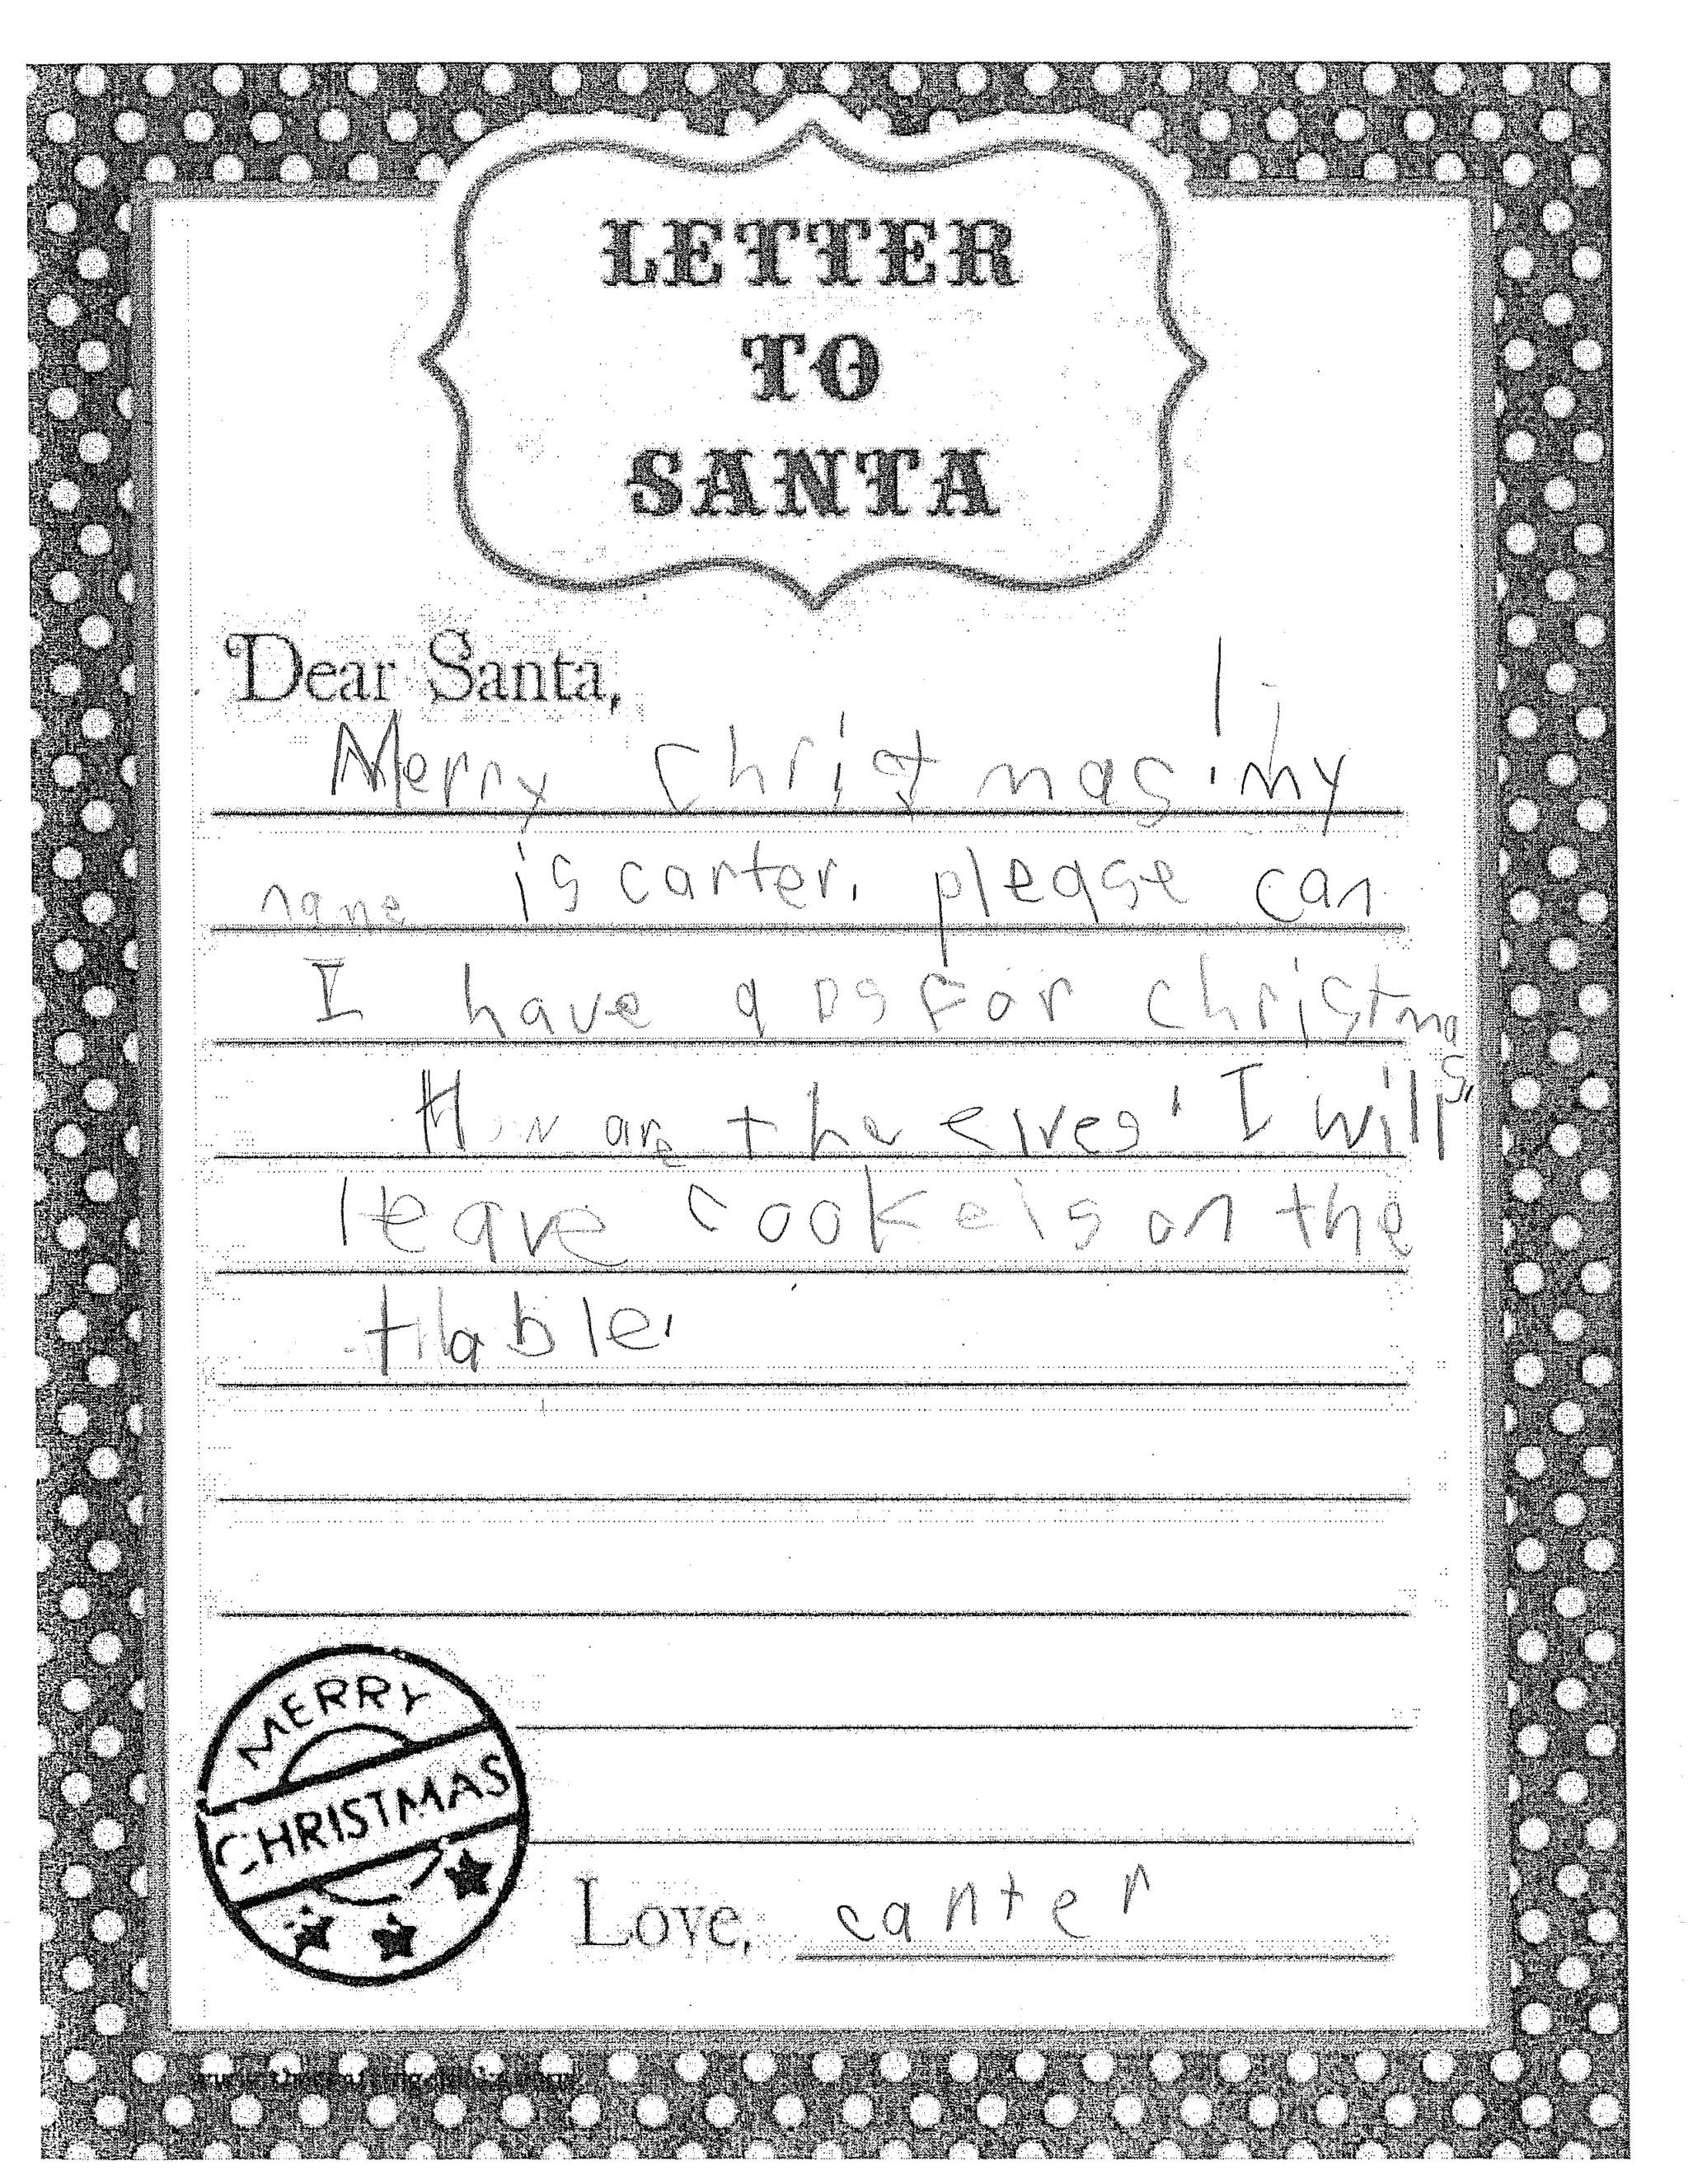 LETTER
TO
SANTA
Dear Santa,
Merry christmas! my
name is carter. please can
I have a DS For christmas.
How are the elves. I will
leave cookeis on the
table.
MERRY
CHRISTMAS
Love, carter